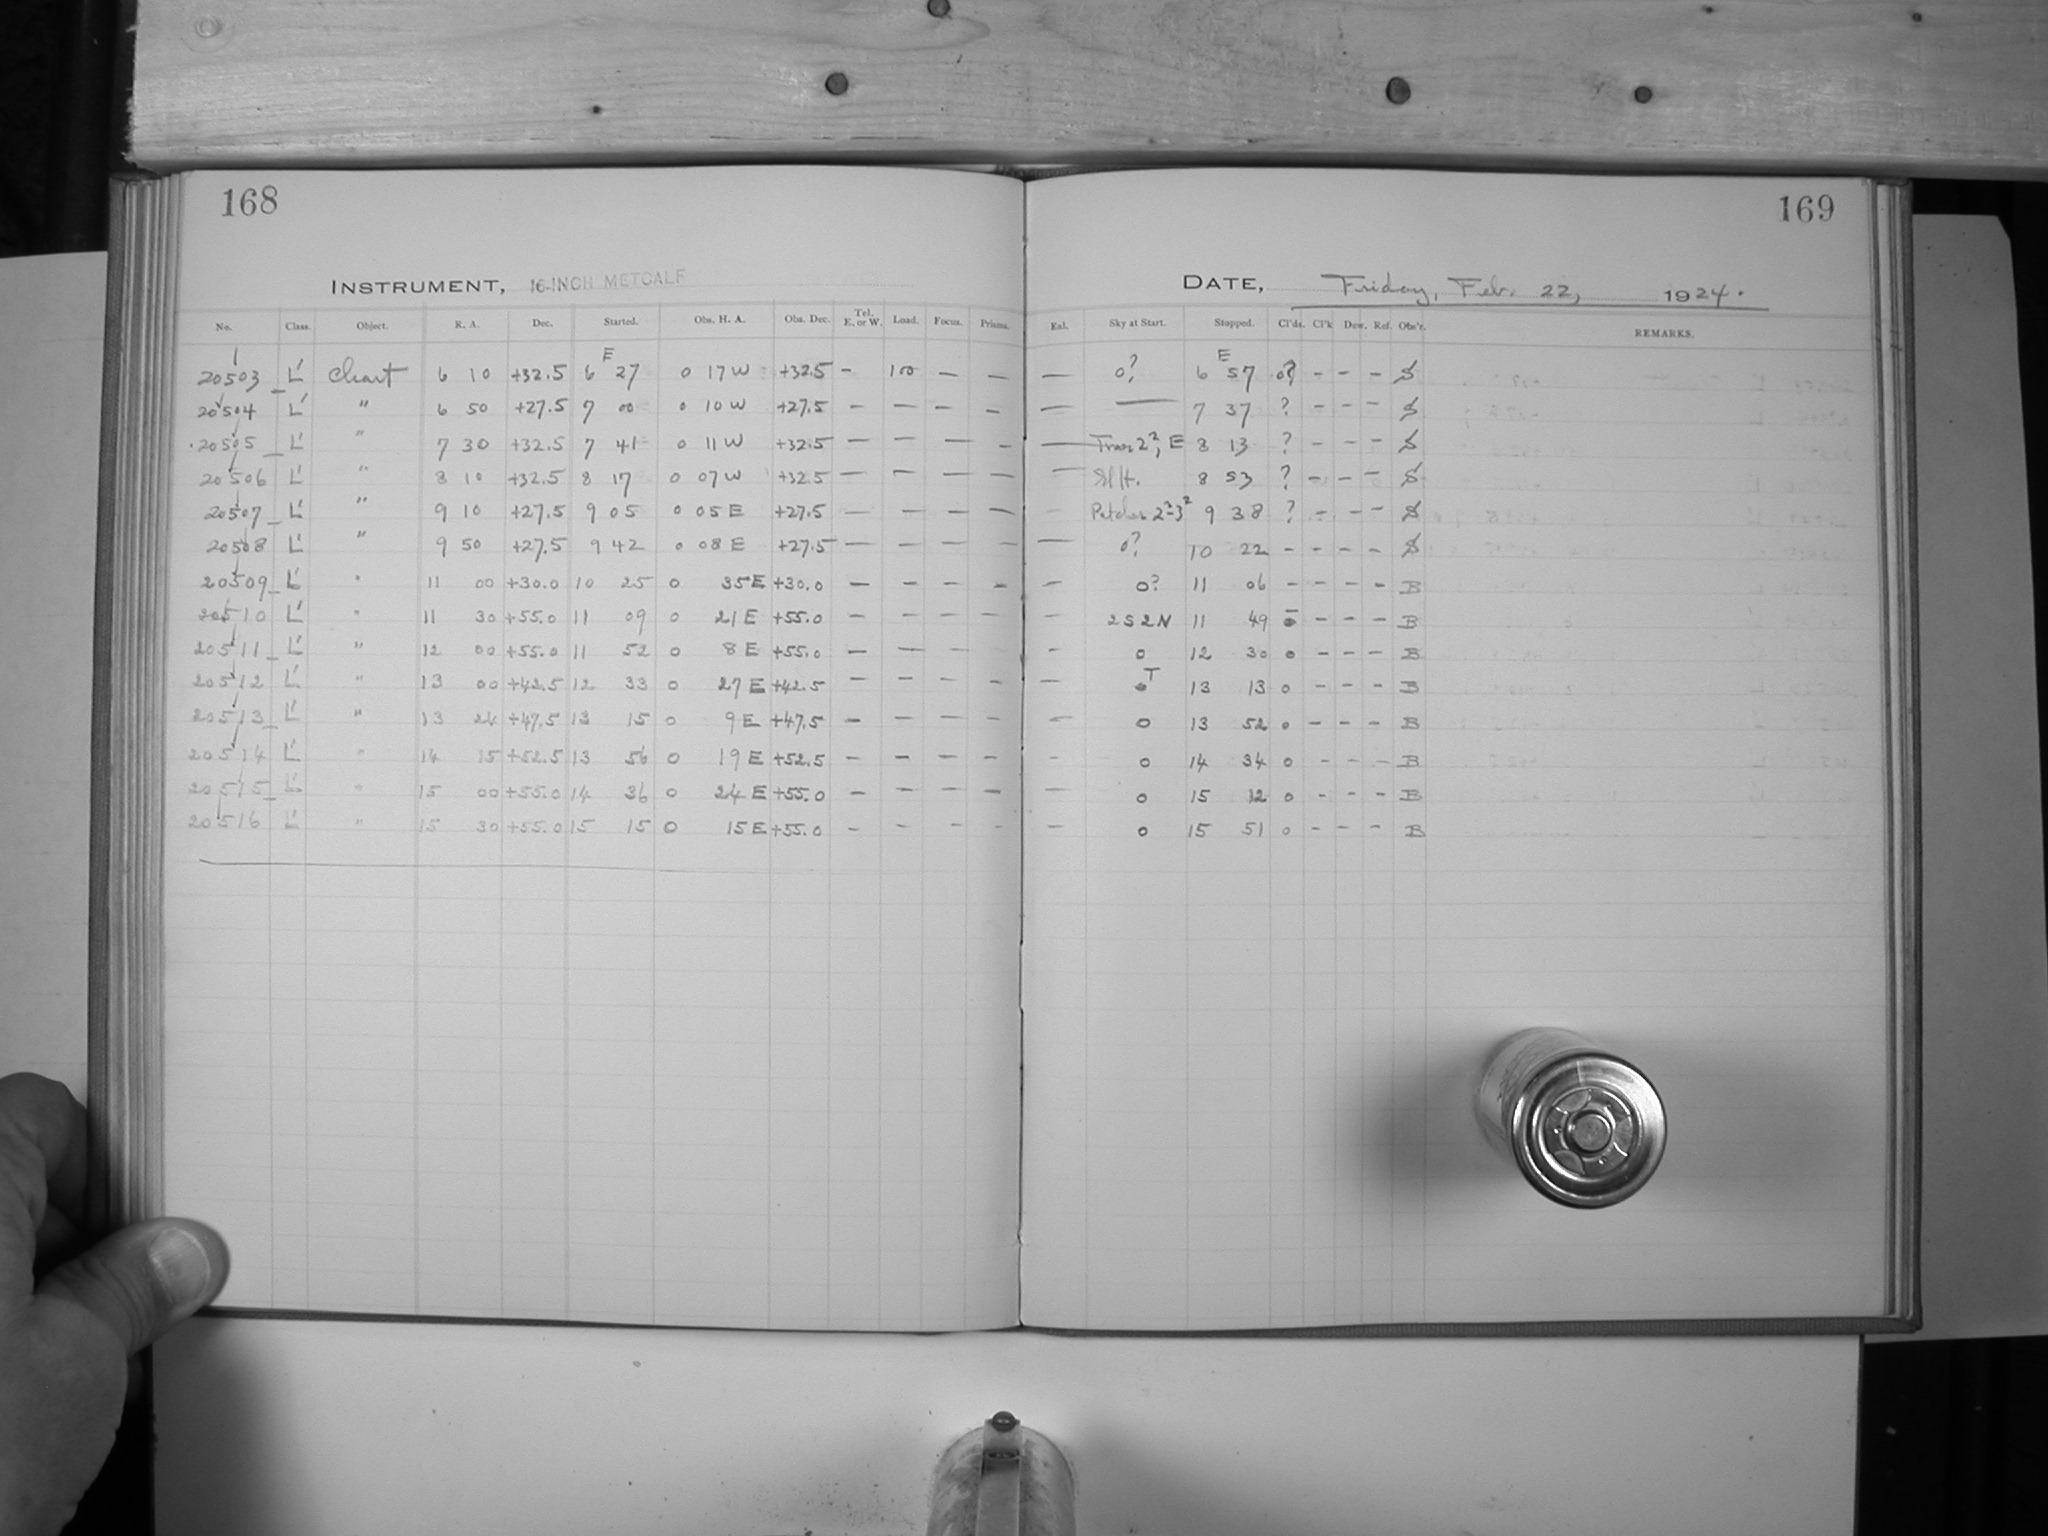 168
169
INSTRUMENT, 16-INCH METCALF
DATE, Friday, Feb. 22, 1924.
No. Class. Object. R. A. Dec. Started. Obs. H. A. Obs. Dec. Tel. E. or W. Load. Focus. Prisms. Exl. Sky at Start. Stopped. Cl'ds. Cl'k Dew. Ref. Obs'r. REMARKS.
E E
20503 L' Chart 6 10 +32.5 6 27 0 17 W +32.5 - 100 - - - 0? 6 57 0? - - - S
20504 L' " 6 50 +27.5 7 00 0 10 W +27.5 - - - - - - 7 37 ? - - - S
20505 L' " 7 30 +32.5 7 41 0 11 W +32.5 - - - - - Trans 2?, E 8 13 ? - - - S
20506 L' " 8 10 +32.5 8 17 0 07 W +32.5 - - - - - Sl H. 8 53 ? - - - S
20507 L' " 9 10 +27.5 9 05 0 05 E +27.5 - - - - - Patches 2²-3² 9 38 ? - - - S
20508 L' " 9 50 +27.5 9 42 0 08 E +27.5 - - - - - 0? 10 22 - - - - S
20509 L' " 11 00 +30.0 10 25 0 35 E +30.0 - - - - - 0? 11 06 - - - - B
20510 L' " 11 30 +55.0 11 09 0 21 E +55.0 - - - - - 2 S 2 N 11 49 0 - - - B
20511 L' " 12 00 +55.0 11 52 0 8 E +55.0 - - - - - 0 12 30 0 - - - B
20512 L' " 13 00 +42.5 12 33 0 27 E +42.5 - - - - - 0 T 13 13 0 - - - B
20513 L' " 13 24 +47.5 13 15 0 9 E +47.5 - - - - - 0 13 52 0 - - - B
20514 L' " 14 15 +52.5 13 56 0 19 E +52.5 - - - - - 0 14 34 0 - - - B
20515 L' " 15 00 +55.0 14 36 0 24 E +55.0 - - - - - 0 15 12 0 - - - B
20516 L' " 15 30 +55.0 15 15 0 15 E +55.0 - - - - - 0 15 51 0 - - - B